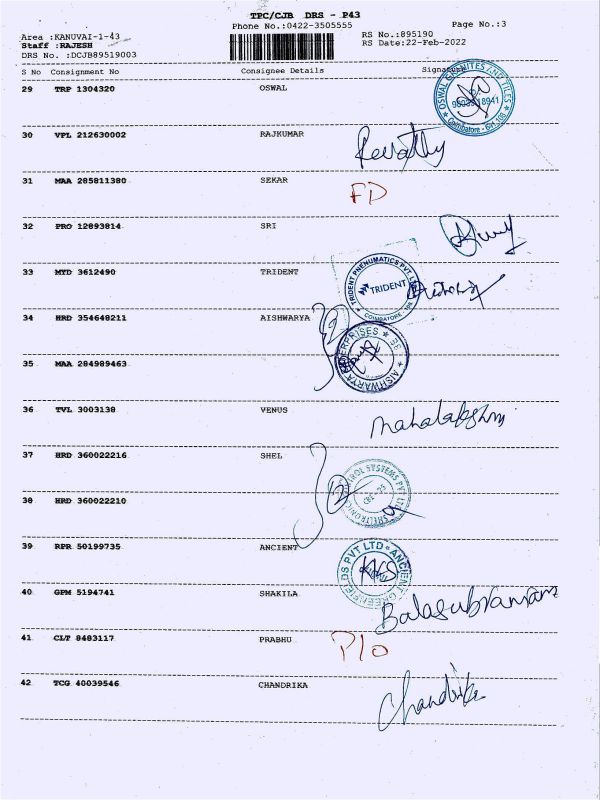 TPC/CJB DRS - P43
Phone No.:0422-3505555
Page No.:3
Area :KANUVAI-1-43
RS No.:895190
Staff :RAJESH
RS Date:22-Feb-2022
DRS No. :DCJB89519003
S No Consignment No Consignee Details Signature
29 TRP 1304320 OSWAL
OSWAL GRANITES AND TILES
Coimbatore - 641 108
30 VPL 212630002 RAJKUMAR
Revathy
31 MAA 285811380 SEKAR
FD
32 PRO 12893814 SRI
33 MYD 3612490 TRIDENT
TRIDENT PNEUMATICS PVT LTD
TRIDENT
COIMBATORE
34 HRD 354648211 AISHWARYA
2
AISHWARYA ENTERPRISES
35 MAA 284989463
36 TVL 3003138 VENUS
mahalakshmi
37 HRD 360022216 SHEL
2
SHELTRONIC CONTROL SYSTEMS PVT LTD
CBE - 25
38 HRD 360022210
39 RPR 50199735 ANCIENT
ANCIENT GREENFIELDS PVT LTD
40 GPM 5194741 SHAKILA
Balasubramani
41 CLT 8483117 PRABHU
P/O
42 TCG 40039546 CHANDRIKA
Chandrika